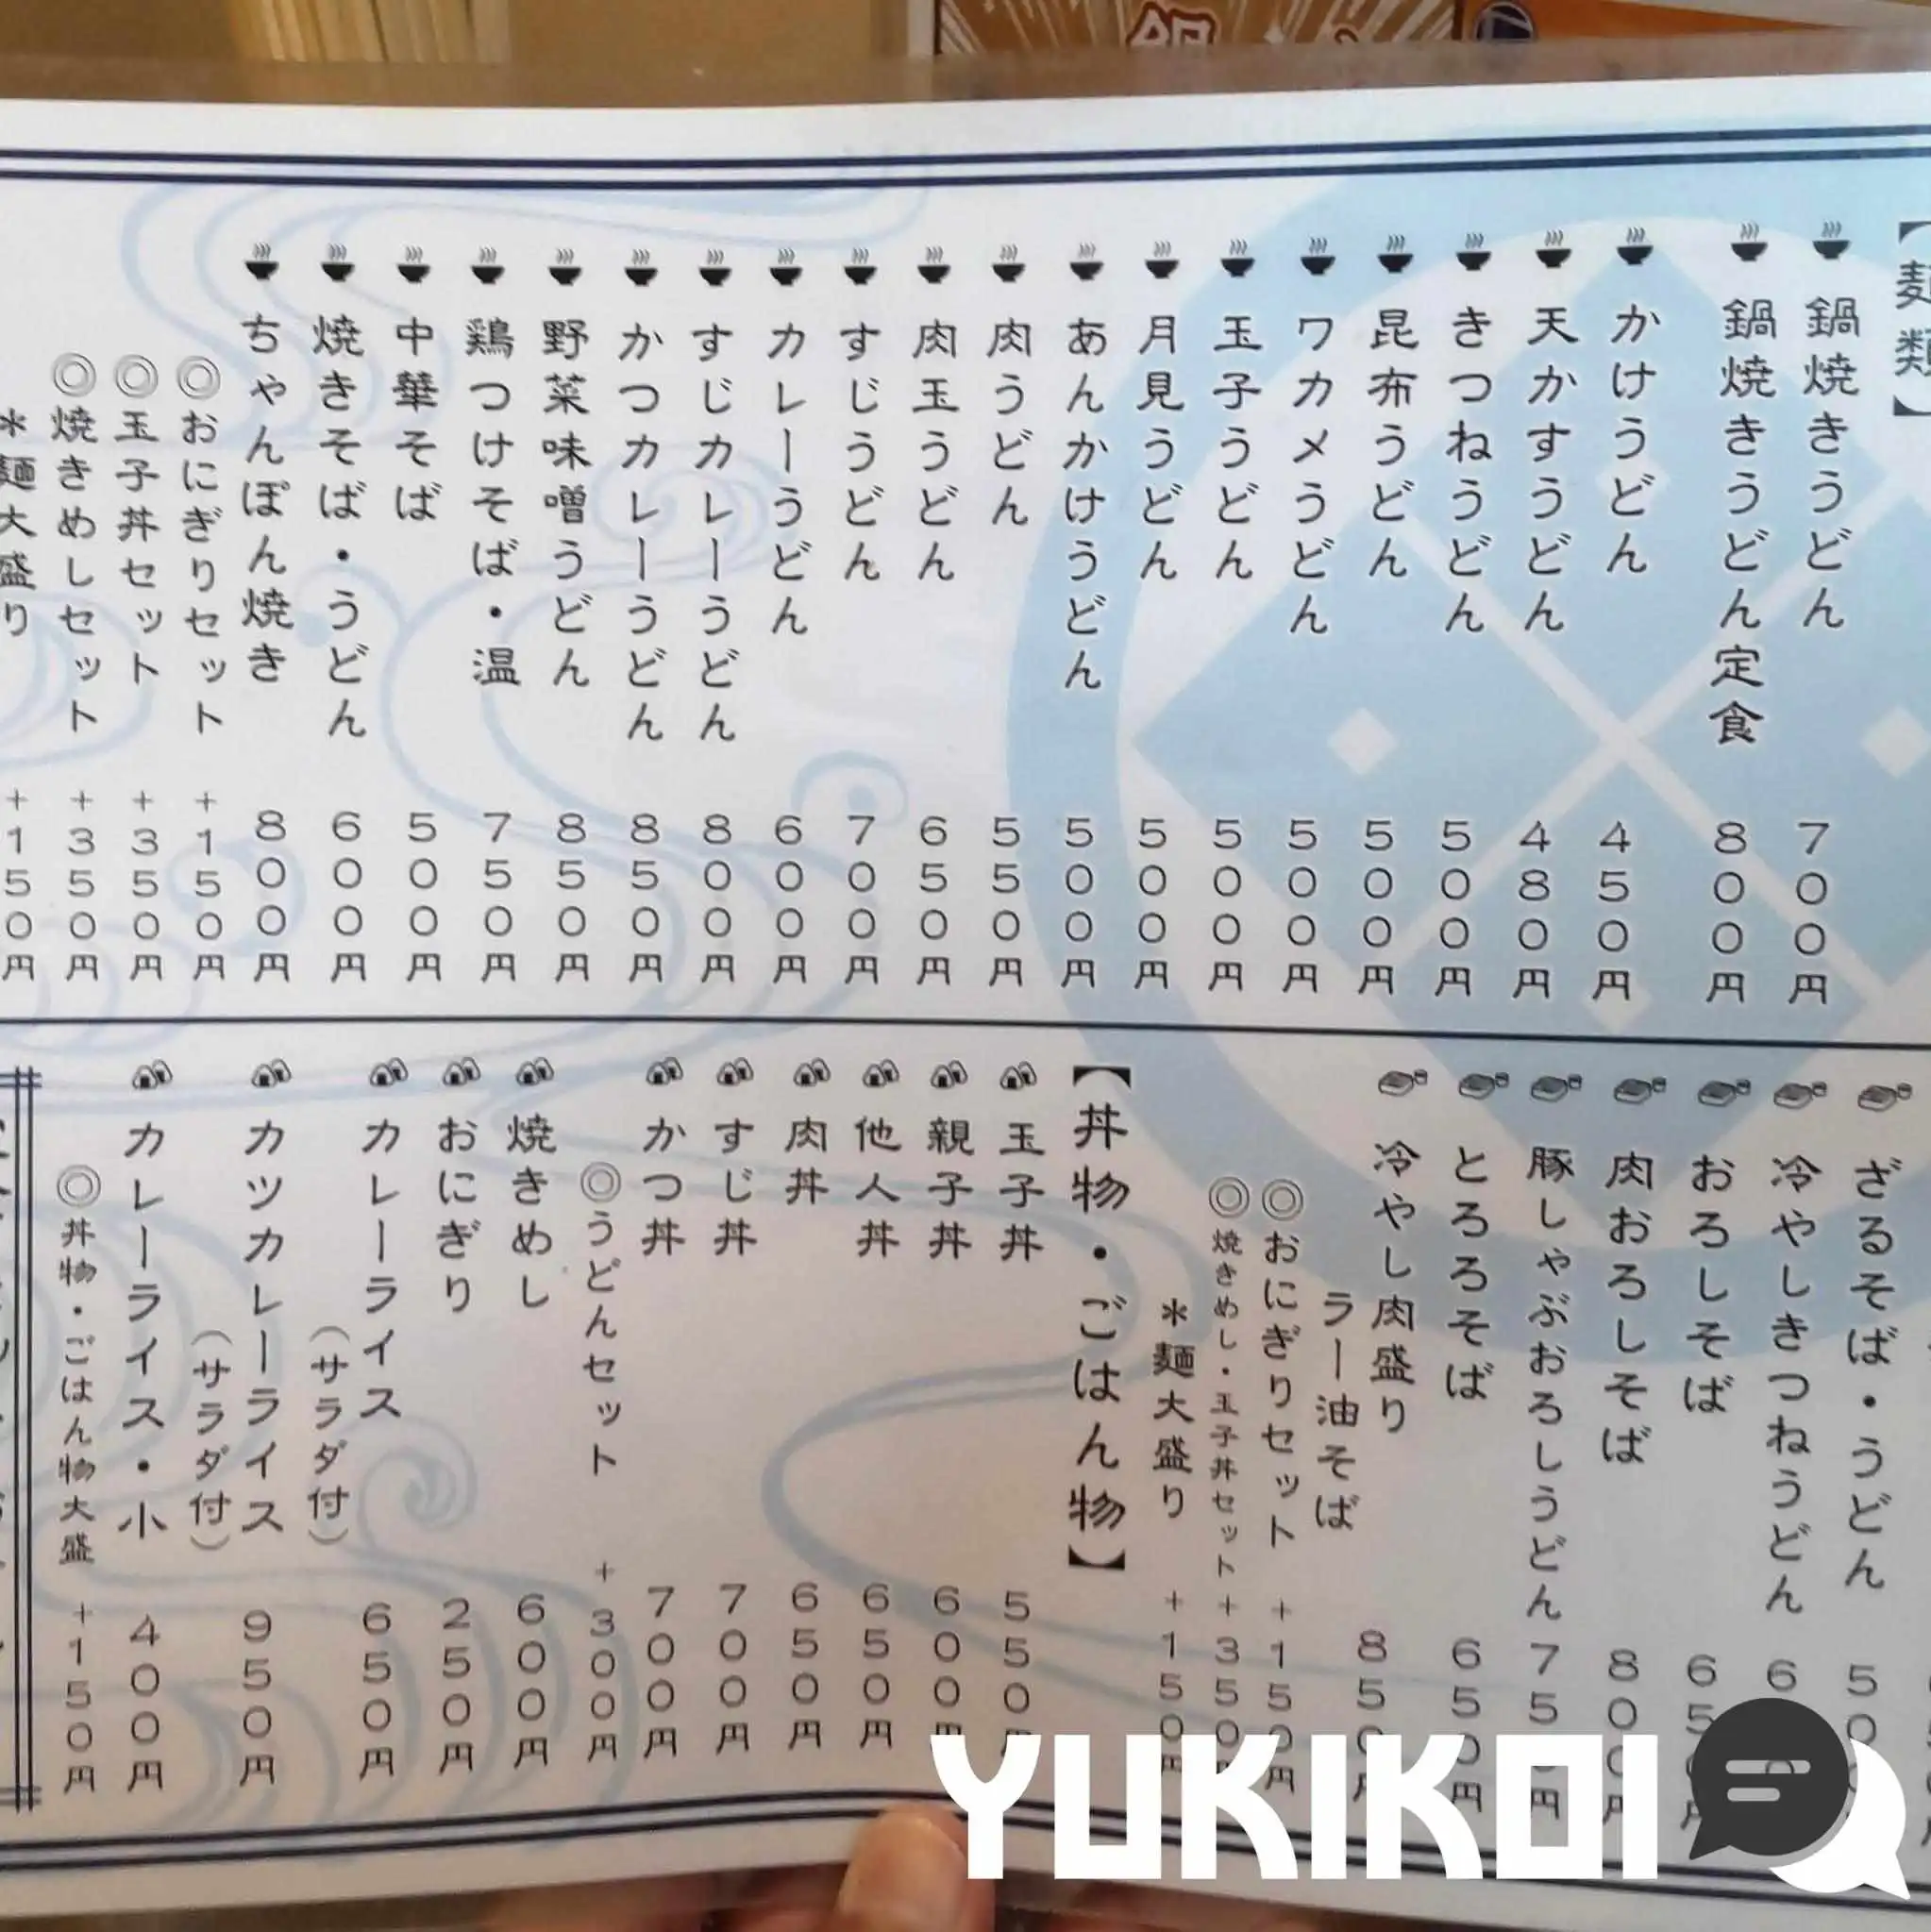 【麺類】
鍋焼きうどん 700円
鍋焼きうどん定食 800円
かけうどん 450円
天かすうどん 480円
きつねうどん 500円
昆布うどん 500円
ワカメうどん 500円
玉子うどん 500円
月見うどん 500円
あんかけうどん 500円
肉うどん 550円
肉玉うどん 650円
すじうどん 700円
カレーうどん 600円
すじカレーうどん 800円
かつカレーうどん 850円
野菜味噌うどん 850円
鶏つけそば・温 750円
中華そば 500円
焼きそば・うどん 600円
ちゃんぽん焼き 800円
◎おにぎりセット +150円
◎玉子丼セット +350円
◎焼きめしセット +350円
*麺大盛り +150円
ざるそば・うどん 50
冷やしきつねうどん 6
おろしそば 650円
肉おろしそば 800円
豚しゃぶおろしうどん 750円
とろろそば 650円
冷やし肉盛り
ラー油そば 850円
◎おにぎりセット +150円
◎焼きめし・玉子丼セット +350円
*麺大盛り +150円
【丼物・ごはん物】
玉子丼 550円
親子丼 600円
他人丼 650円
肉丼 650円
すじ丼 700円
かつ丼 700円
◎うどんセット +300円
焼きめし 600円
おにぎり 250円
カレーライス 650円
(サラダ付)
カツカレーライス 950円
(サラダ付)
カレーライス・小 400円
◎丼物・ごはん物大盛 +150円
YUKIKOI